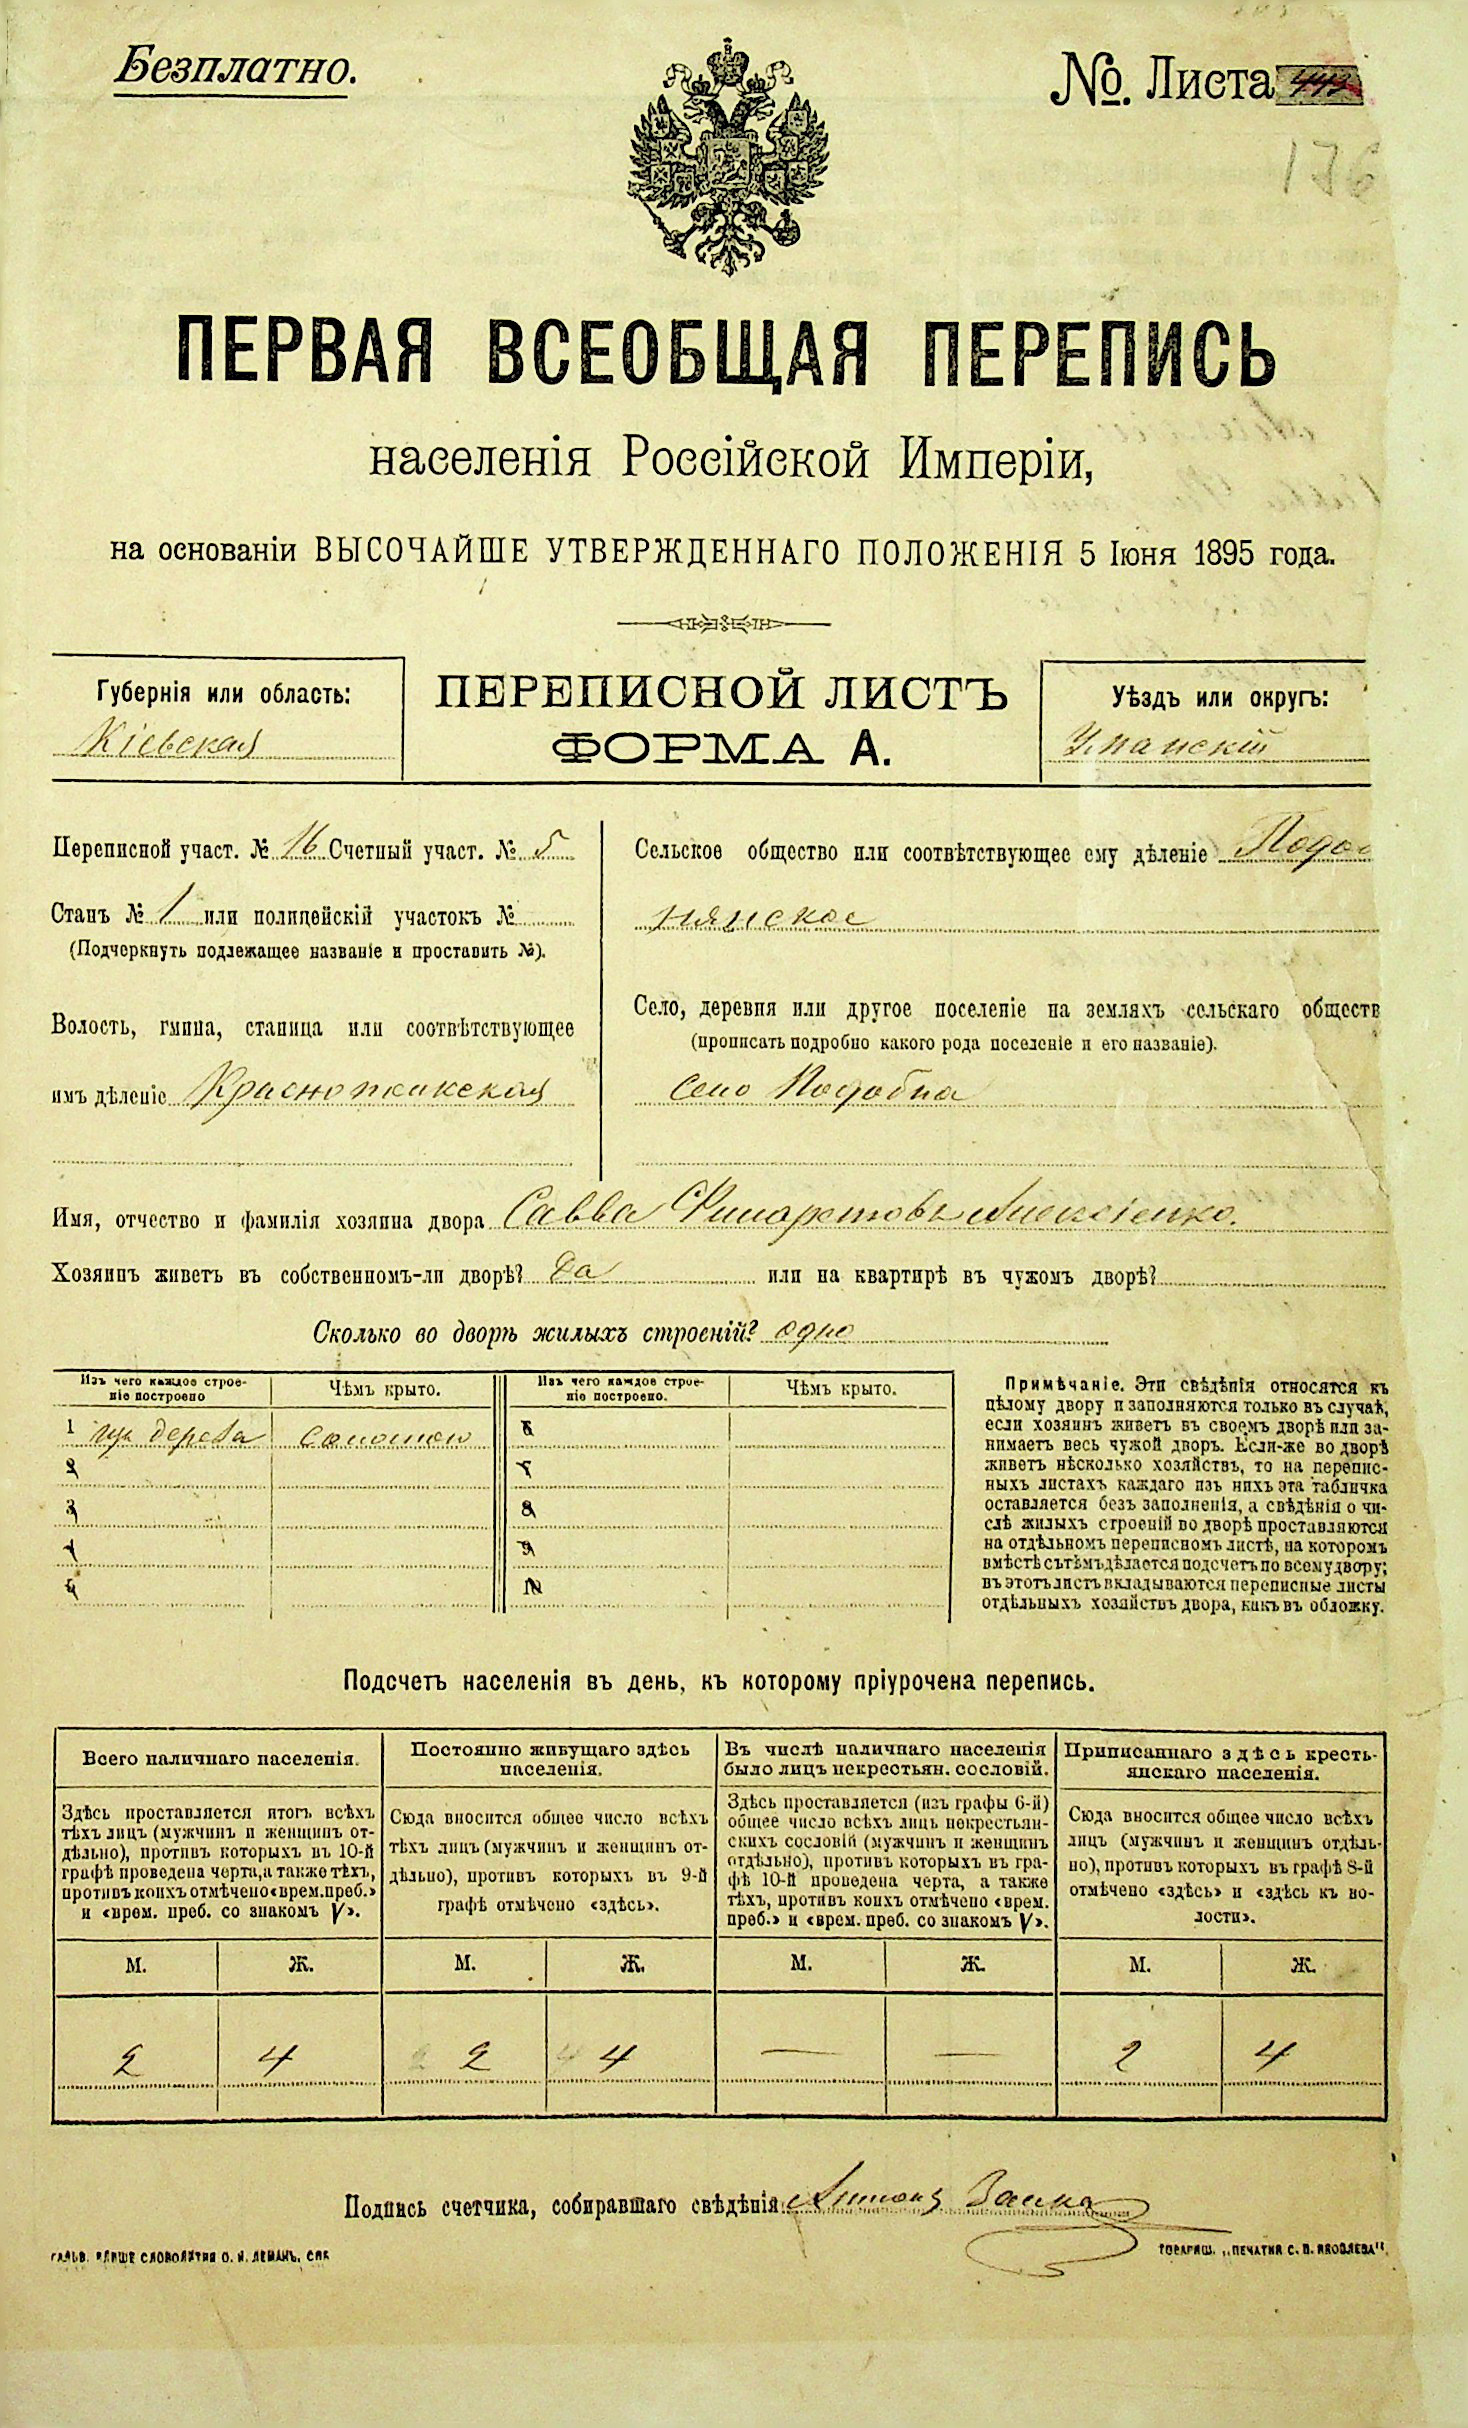 Безплатно.
№. Листа
176
ПЕРВАЯ ВСЕОБЩАЯ ПЕРЕПИСЬ
населенія Россійской Имперіи,
на основаніи ВЫСОЧАЙШЕ УТВЕРЖДЕННАГО ПОЛОЖЕНІЯ 5 Іюня 1895 года.
Губернія или область:
Кіевская
ПЕРЕПИСНОЙ ЛИСТЪ
ФОРМА А.
Уѣздъ или округъ:
Уманскій
Переписной участ. № 16 Счетный участ. № 5
Станъ № 1 или полицейскій участокъ №
(Подчеркнуть подлежащее названіе и проставить №).
Волость, гмина, станица или соотвѣтствующее
имъ дѣленіе
Сельское общество или соотвѣтствующее ему дѣленіе Подоб
нянское
Село, деревня или другое поселеніе на земляхъ сельскаго обществ
(прописать подробно какого рода поселеніе и его названіе).
село Подобна
Имя, отчество и фамилія хозяина двора Савва Филаретовъ Алексіенко.
Хозяинъ живетъ въ собственномъ-ли дворѣ? Да или на квартирѣ въ чужомъ дворѣ?
Сколько во дворѣ жилыхъ строеній? одно
Изъ чего каждое строе-
ніе построено
Чѣмъ крыто.
Изъ чего каждое строе-
ніе построено.
Чѣмъ крыто.
1 изъ дерева соломою 6
2 7
3 8
4 9
5 10
Примѣчаніе. Эти свѣдѣнія относятся къ
цѣлому двору и заполняются только въ случаѣ,
если хозяинъ живетъ въ своемъ дворѣ или за-
нимаетъ весь чужой дворъ. Если-же во дворѣ
живетъ нѣсколько хозяйствъ, то на перепис-
ныхъ листахъ каждаго изъ нихъ эта табличка
оставляется безъ заполненія, а свѣдѣнія о чи-
слѣ жилыхъ строеній во дворѣ проставляются
на отдѣльномъ переписномъ листѣ, на которомъ
вмѣстѣ съ тѣмъ дѣлается подсчетъ по всему двору;
въ этотъ листъ вкладываются переписные листы
отдѣльныхъ хозяйствъ двора, какъ въ обложку.
Подсчетъ населенія въ день, къ которому пріурочена перепись.
Всего наличнаго населенія.
Здѣсь проставляется итогъ всѣхъ
тѣхъ лицъ (мужчинъ и женщинъ от-
дѣльно), противъ которыхъ въ 10-й
графѣ проведена черта, а также тѣхъ,
противъ коихъ отмѣчено «врем. преб.»
и «врем. преб. со знакомъ V».
Постоянно живущаго здѣсь
населенія.
Сюда вносится общее число всѣхъ
тѣхъ лицъ (мужчинъ и женщинъ от-
дѣльно), противъ которыхъ въ 9-й
графѣ отмѣчено «здѣсь».
Въ числѣ наличнаго населенія
было лицъ некрестьян. сословій.
Здѣсь проставляется (изъ графы 6-й)
общее число всѣхъ лицъ некрестьян-
скихъ сословій (мужчинъ и женщинъ
отдѣльно), противъ которыхъ въ гра-
фѣ 10-й проведена черта, а также
тѣхъ, противъ коихъ отмѣчено «врем.
преб.» и «врем. преб. со знакомъ V».
Приписаннаго здѣсь кресть-
янскаго населенія.
Сюда вносится общее число всѣхъ
лицъ (мужчинъ и женщинъ отдѣль-
но), противъ которыхъ въ графѣ 8-й
отмѣчено «здѣсь» и «здѣсь къ во-
лости».
М. Ж. М. Ж. М. Ж. М. Ж.
2 4 2 4 — — 2 4
Подпись счетчика, собиравшаго свѣдѣнія Антонъ Заика
ГАЛЬВ. КЛИШЕ СЛОВОЛИТНИ О. И. ЛЕМАНЪ, СПБ
ТОВАРИЩ. „ПЕЧАТНЯ С. П. ЯКОВЛЕВА"